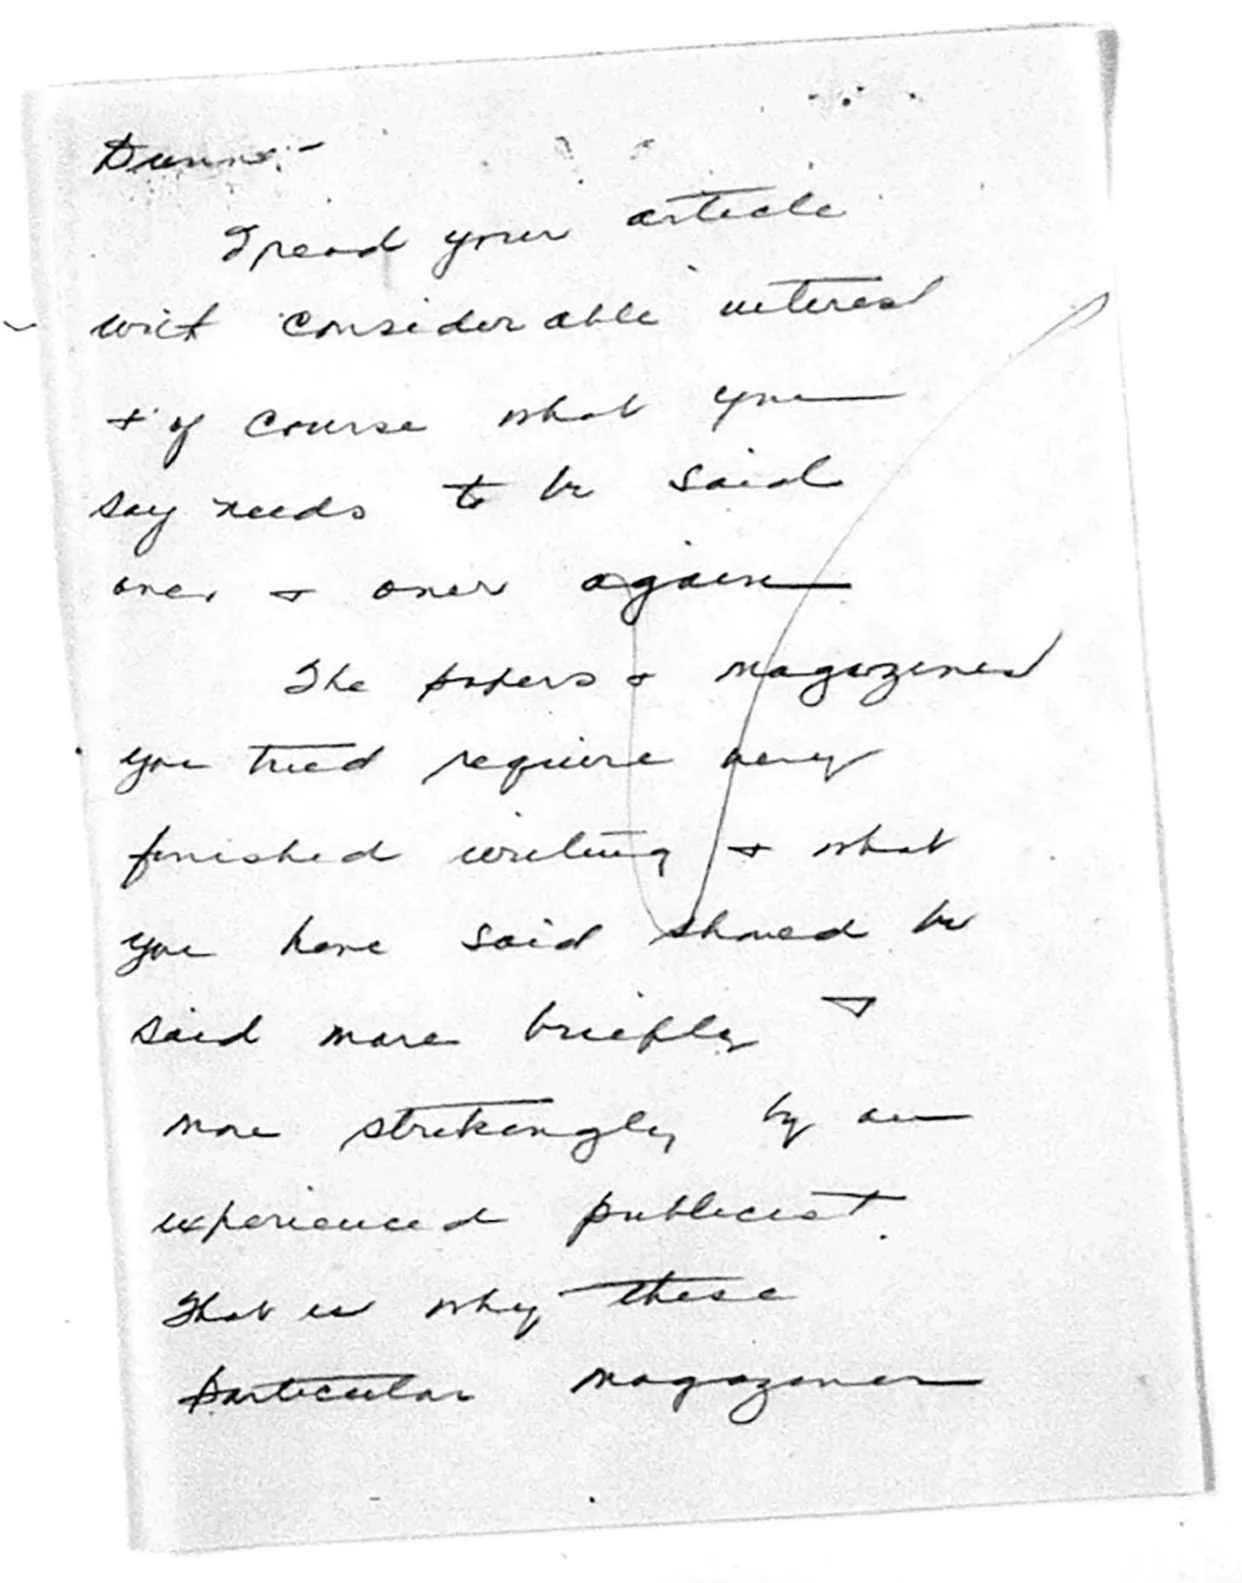 Dunn:-
I read your article
with considerable interest
+ of course what you
say needs to be said
over + over again
The papers + magazines
you tried require very
finished writing + what
you have said should be
said more briefly +
more strikingly by an
experienced publicist.
That is why these
particular magazines